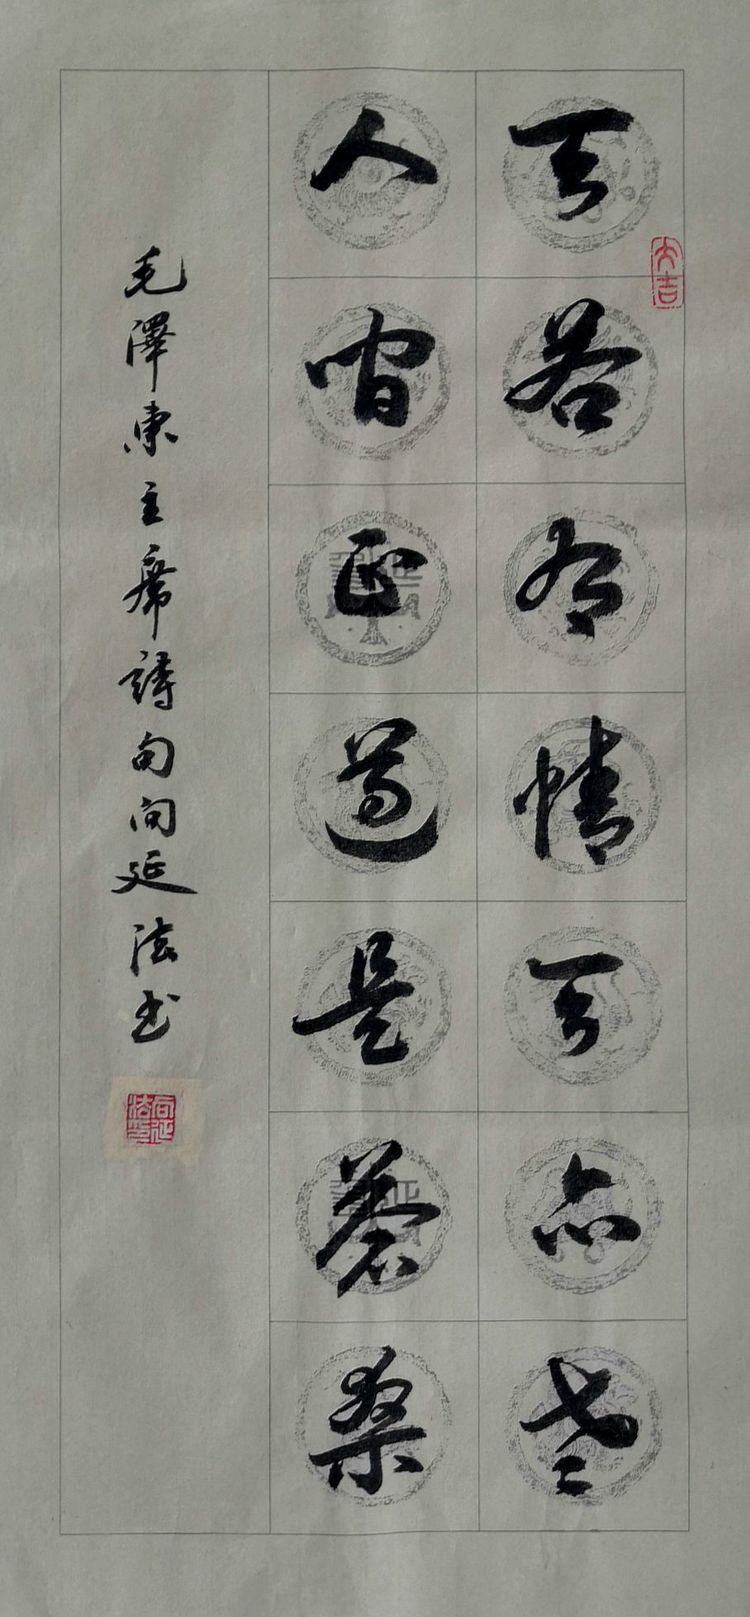 天若有情天亦老
人間正道是蒼桑
毛澤東主席詩句向延法书
大吉
向延法印